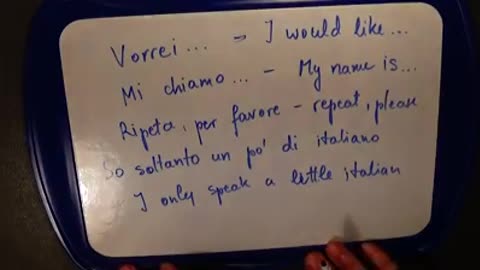 Vorrei... = I would like...
Mi chiamo... - My name is...
Ripeta, per favore - repeat, please
So soltanto un po' di italiano
I only speak a little italian